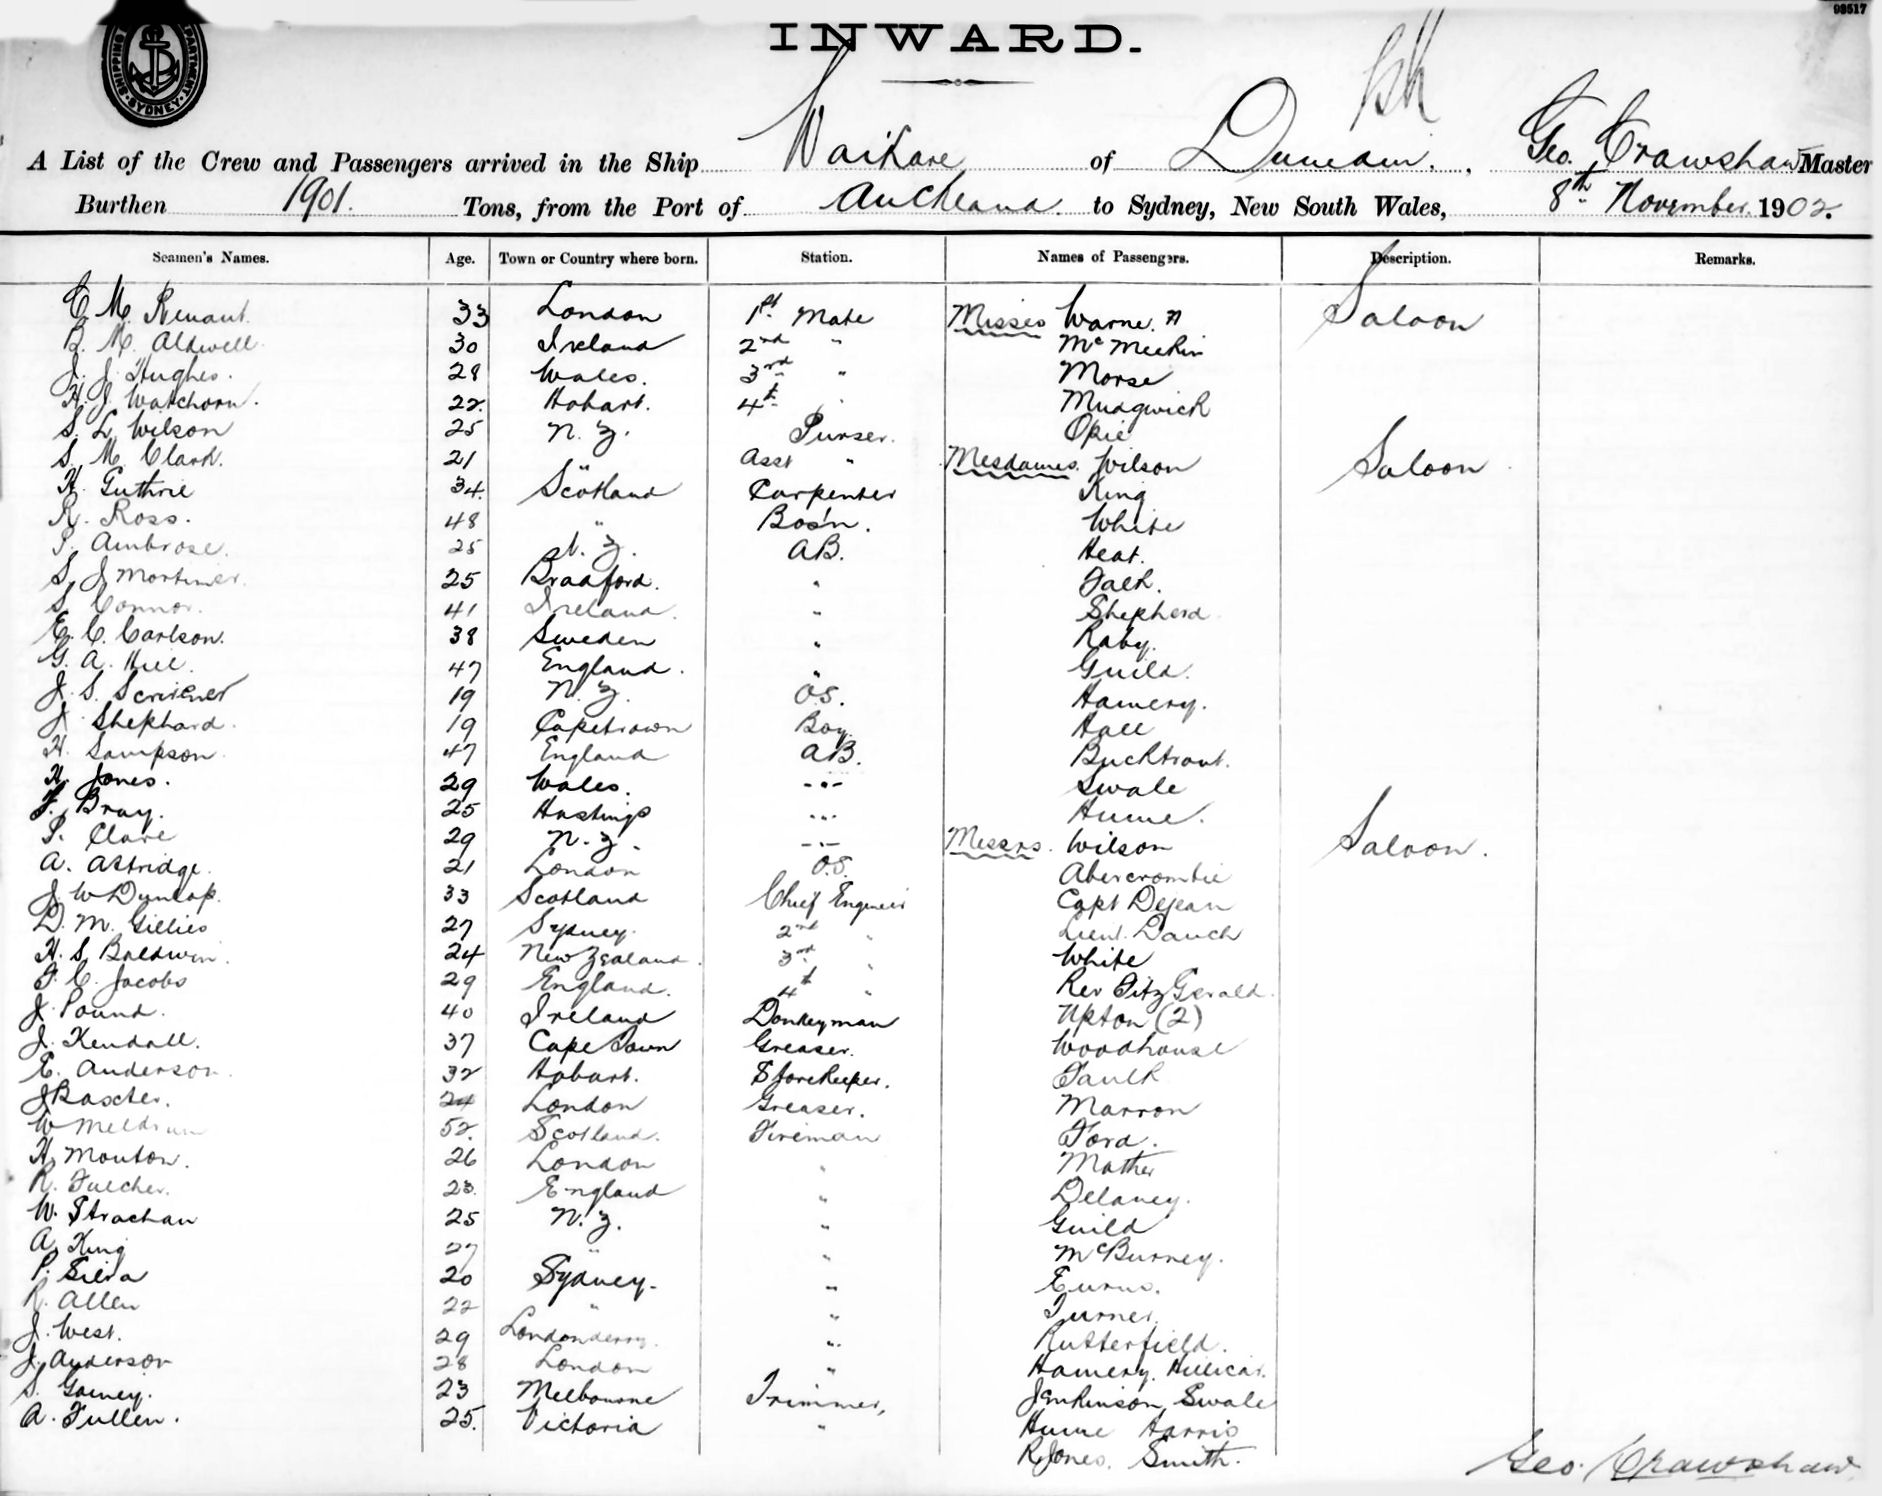 93517
INWARD.
SHIPPING DEPARTMENT SYDNEY
A List of the Crew and Passengers arrived in the Ship Waikare of Dunedin, Geo. Crawshaw Master
Burthen 1901. Tons, from the Port of Auckland to Sydney, New South Wales, 8th November 1902.
Seamen's Names. Age. Town or Country where born. Station. Names of Passengers. Description. Remarks.
C. M. 33 London 1st Mate Misses Warne Saloon
B. M. Aldwell 30 Ireland 2nd " McMeekin
J. J. Hughes. 28 Wales. 3rd " Morse
H. J. Watchorn. 22. Hobart. 4th " Mudgwick
S. L. Wilson 25 N. Z. Purser. Opie
S. M. Clark. 21 " Asst " Mesdames. Wilson Saloon
H. Guthrie 34. Scotland Carpenter King
R. Ross. 48 " Bos'n. White
P. Ambrose. 25 N. Z. AB. Heat.
S. J Mortimer. 25 Bradford. " Falk.
S. Connor. 41 Ireland. " Shepherd
E. C. Carlson. 38 Sweden " Raby.
G. A. Hill. 47 England. " Guild.
J. S. Scrivener 19 N. Z. O.S. Hamery.
J. Shephard. 19 Capetown Boy. Hall
H. Sampson 47 England AB. Bucktrout.
H. Jones. 29 Wales. -"- Swale
F. Bray. 25 Hastings -"- Hume.
P. Clare 29 N. Z. -"- Messrs. Wilson Saloon.
A. Astridge. 21 London O.S. Abercrombie
J. W Dunlop. 33 Scotland Chief Engineer Capt Dejean
D. M. Gillies 27 Sydney. 2nd " Lieut. Dauch
H. S. Baldwin. 24 New Zealand. 3rd " White
F. C. Jacobs 29 England. 4th " Rev FitzGerald.
J. Pound. 40 Ireland Donkeyman Upton (2)
J. Kendall. 37 Cape Town Greaser. Woodhouse
E. Anderson. 32 Hobart. Storekeeper. Faulk
J Baxter. 24 London Greaser. Marron
W Meldrum 52. Scotland. Fireman Ford.
H. Mouton. 26 London " Mather
R. Fulcher. 23. England " Delaney.
W. Strachan 25 N. Z. " Guild
A. King 27 " " McBurney.
P. Silva 20 Sydney. "
R. Allen 22 " " Turner.
J. West. 29 Londonderry. " Rutterfield.
J. Anderson 28 London " Hamery.
S. Gamey. 23 Melbourne Trimmer, Jenkinson Swale
A. Fullen. 25. Victoria " Hume Harris
R. Jones. Smith.
Geo. Crawshaw